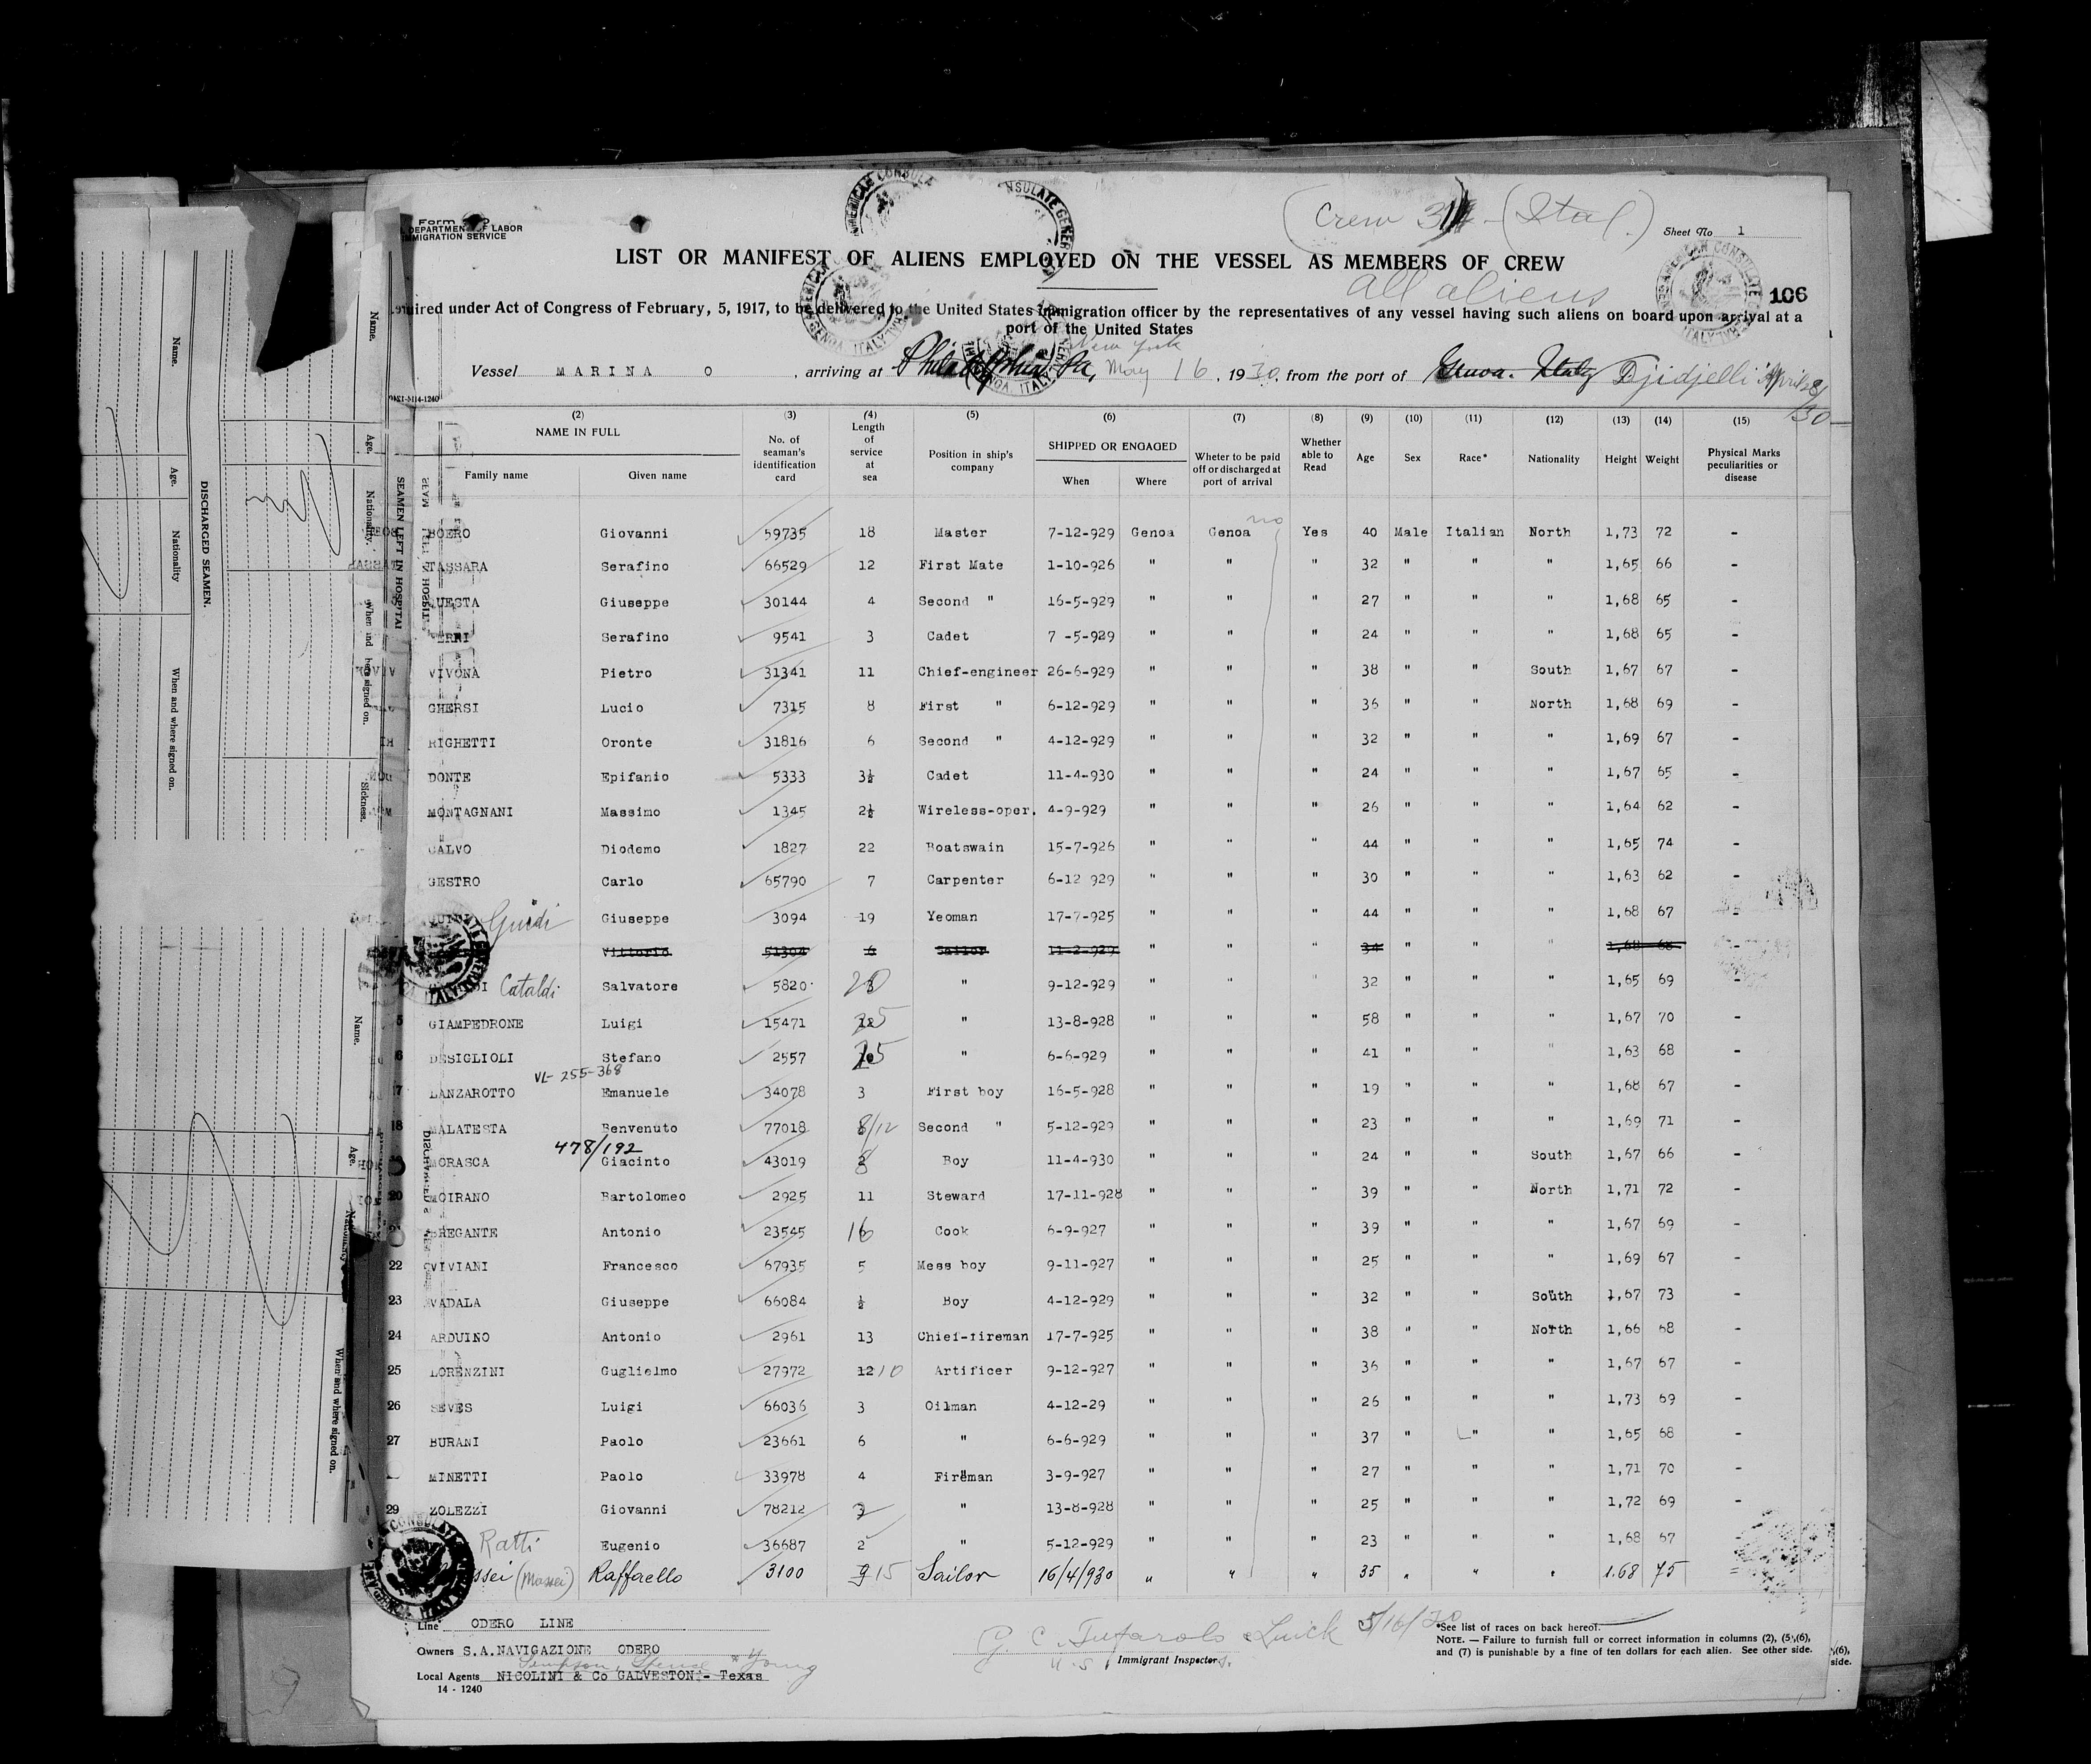 (Crew 31 - (Ital.)
Sheet No 1
DEPARTMENT OF LABOR
IMMIGRATION SERVICE
LIST OR MANIFEST OF ALIENS EMPLOYED ON THE VESSEL AS MEMBERS OF CREW
All aliens
106
required under Act of Congress of February, 5, 1917, to be delivered to the United States Immigration officer by the representatives of any vessel having such aliens on board upon arrival at a
port of the United States
New York
Vessel MARINA O , arriving at Philadelphia Pa, May 16, 1930, from the port of Genoa. Italy Djidjelli April 28/30
(2) (3) (4) (5) (6) (7) (8) (9) (10) (11) (12) (13) (14) (15)
NAME IN FULL No. of seaman's identification card Length of service at sea Position in ship's company SHIPPED OR ENGAGED Wheter to be paid off or discharged at port of arrival Whether able to Read Age Sex Race* Nationality Height Weight Physical Marks peculiarities or disease
Family name Given name When Where
no
BOERO Giovanni 59735 18 Master 7-12-929 Genoa Genoa Yes 40 Male Italian North 1,73 72 -
TASSARA Serafino 66529 12 First Mate 1-10-926 " " " 32 " " " 1,65 66 -
Giuseppe 30144 4 Second " 16-5-929 " " " 27 " " " 1,68 65 -
Serafino 9541 3 Cadet 7 -5-929 " " " 24 " " " 1,68 65 -
VIVONA Pietro 31341 11 Chief-engineer 26-6-929 " " " 38 " " South 1,67 67 -
GHERSI Lucio 7315 8 First " 6-12-929 " " " 36 " " North 1,68 69 -
RIGHETTI Oronte 31816 6 Second " 4-12-929 " " " 32 " " " 1,69 67 -
DONTE Epifanio 5333 3½ Cadet 11-4-930 " " " 24 " " " 1,67 65 -
MONTAGNANI Massimo 1345 2½ Wireless-oper. 4-9-929 " " " 26 " " " 1,64 62 -
CALVO Diodemo 1827 22 Boatswain 15-7-926 " " " 44 " " " 1,65 74 -
GESTRO Carlo 65790 7 Carpenter 6-12 929 " " " 30 " " " 1,63 62 -
Guidi Giuseppe 3094 19 Yeoman 17-7-925 " " " 44 " " " 1,68 67 -
Vittorio 51304 6 Sailor 11-2-929 " " " 34 " " " 1,68 68 -
Cataldi Salvatore 5820 20 " 9-12-929 " " " 32 " " " 1,65 69 -
5 GIAMPEDRONE Luigi 15471 35 " 13-8-928 " " " 58 " " " 1,67 70 -
6 DESIGLIOLI Stefano 2557 25 " 6-6-929 " " " 41 " " " 1,63 68 -
VL-255-368
17 LANZAROTTO Emanuele 34078 3 First boy 16-5-928 " " " 19 " " " 1,68 67 -
18 MALATESTA Benvenuto 77018 8/12 Second " 5-12-929 " " " 23 " " " 1,69 71 -
478/192
MORASCA Giacinto 43019 8 Boy 11-4-930 " " " 24 " " South 1,67 66 -
20 MOIRANO Bartolomeo 2925 11 Steward 17-11-928 " " " 39 " " North 1,71 72 -
21 BREGANTE Antonio 23545 16 Cook 6-9-927 " " " 39 " " " 1,67 69 -
22 VIVIANI Francesco 67935 5 Mess boy 9-11-927 " " " 25 " " " 1,69 67 -
23 VADALA Giuseppe 66084 ½ Boy 4-12-929 " " " 32 " " South 1,67 73 -
24 ARDUINO Antonio 2961 13 Chief-fireman 17-7-925 " " " 38 " " North 1,66 68 -
25 LORENZINI Guglielmo 27972 12 10 Artificer 9-12-927 " " " 36 " " " 1,67 67 -
26 SEVES Luigi 66036 3 Oilman 4-12-29 " " " 26 " " " 1,73 69 -
27 BURANI Paolo 23661 6 " 6-6-929 " " " 37 " " " 1,65 68 -
MINETTI Paolo 33978 4 Fireman 3-9-927 " " " 27 " " " 1,71 70 -
29 ZOLEZZI Giovanni 78212 2 " 13-8-928 " " " 25 " " " 1,72 69 -
Ratti Eugenio 36687 2 " 5-12-929 " " " 23 " " " 1,68 67
(Massei) Raffaello 3100 9 15 Sailor 16/4/930 " " " 35 " " " 1.68 75
Line ODERO LINE
Owners S.A.NAVIGAZIONE ODERO
Simpson, Spence & Young
Local Agents NICOLINI & Co GALVESTON - Texas
14 - 1240
5/16/30
U.S. Immigrant Inspectors.
*See list of races on back hereof.
NOTE. — Failure to furnish full or correct information in columns (2), (5), (6),
and (7) is punishable by a fine of ten dollars for each alien. See other side.
DISCHARGED SEAMEN.
Name. Age. Nationality When and where signed on.
SEAMEN LEFT IN HOSPITAL
Name. Age. Nationality. When and where signed on. Sickness.
Name. Age. Nationality When and where signed on.